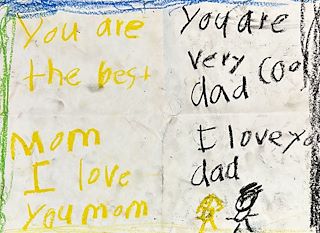 You are
the best
Mom
I love
you mom
You are
very cool
dad
I love yo
dad